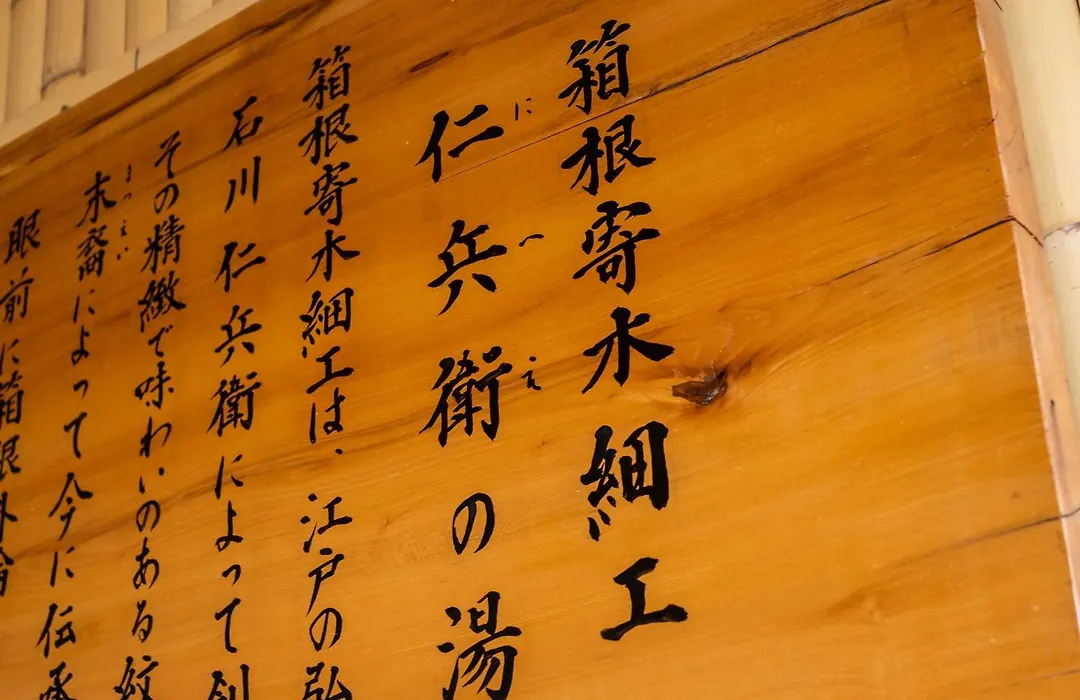 箱根寄木細工
仁兵衛の湯
に へ え
箱根寄木細工は、江戸の弘
石川仁兵衛によって創
その精緻で味わいのある紋
末裔によって今に伝承
まつえい
眼前に箱根外輪